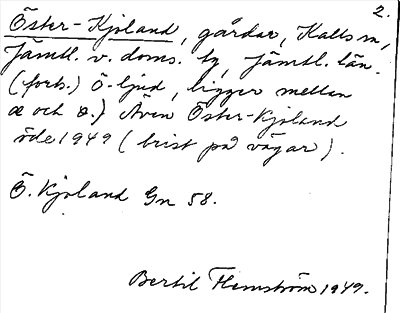 2.
Öster-Kjoland, gårdar, Kalls sn,
Jämtl. v. doms. bg, Jämtl. län.
(forts.) ö-ljud, ligger mellan
œ och ø.) Även Öster-Kjoland
öde 1949 (brist på vägar).
Ö. Kjoland Gn 58.
Bertil Flemström 1949.